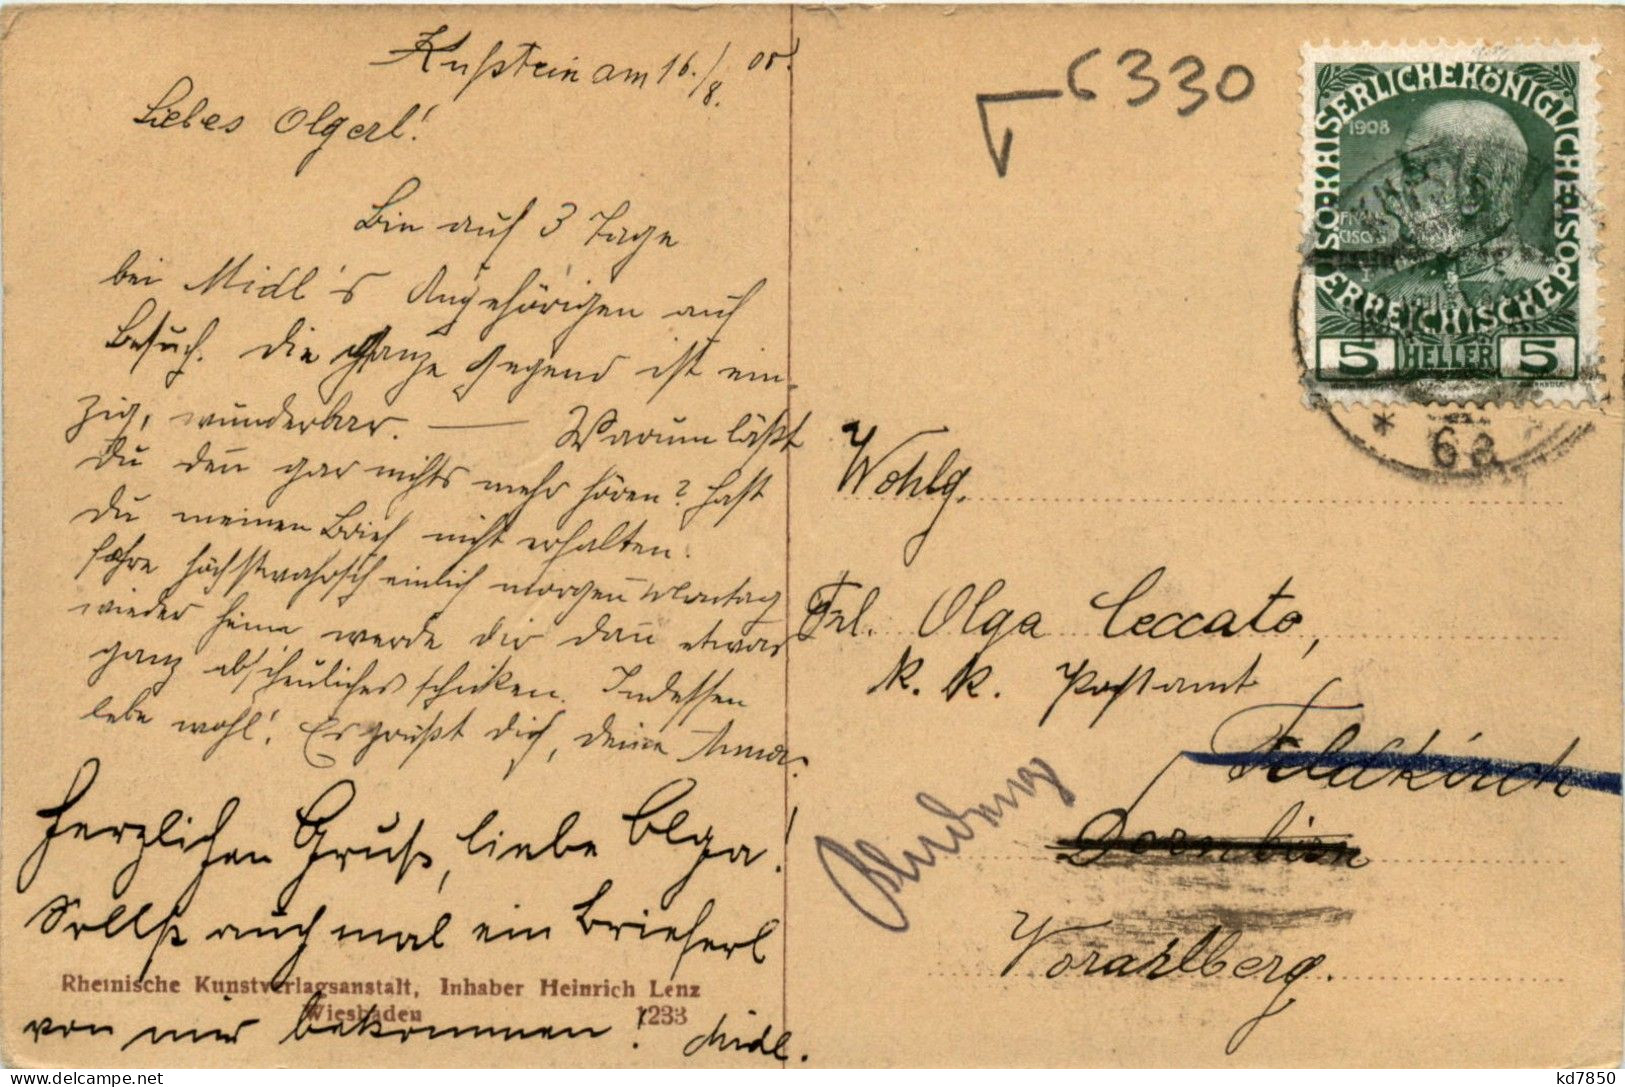 Kufstein am 16./8.
Liebes Olgerl!
Bin auf 3 Tage
bei Midl's Angehörigen auf
Besuch. Die ganze Gegend ist ein-
zig, wunderbar. — Warum läßt
Du den gar nichts mehr hören? Hast
Du meinen Brief nicht erhalten.
Fahre höchstwahrscheinlich morgen Montag
wieder heim werde dir dann etwas
ganz abscheuliches schicken. Indessen
lebe wohl! Es grüßt dich, deine Anna.
Herzlichen Gruß, liebe Olga!
Sollst auch mal ein Brieferl
von mir bekommen! Midl.
Rheinische Kunstverlagsanstalt, Inhaber Heinrich Lenz
Wiesbaden 1233
6330
KAISERLICHE KÖNIGLICHE ÖSTERREICHISCHE POST
1908
5 HELLER 5
* 6a
Wohlg.
Frl. Olga Ceccato,
k. k. Postamt
Feldkirch
Dornbirn
Bludenz
Vorarlberg.
kd7850